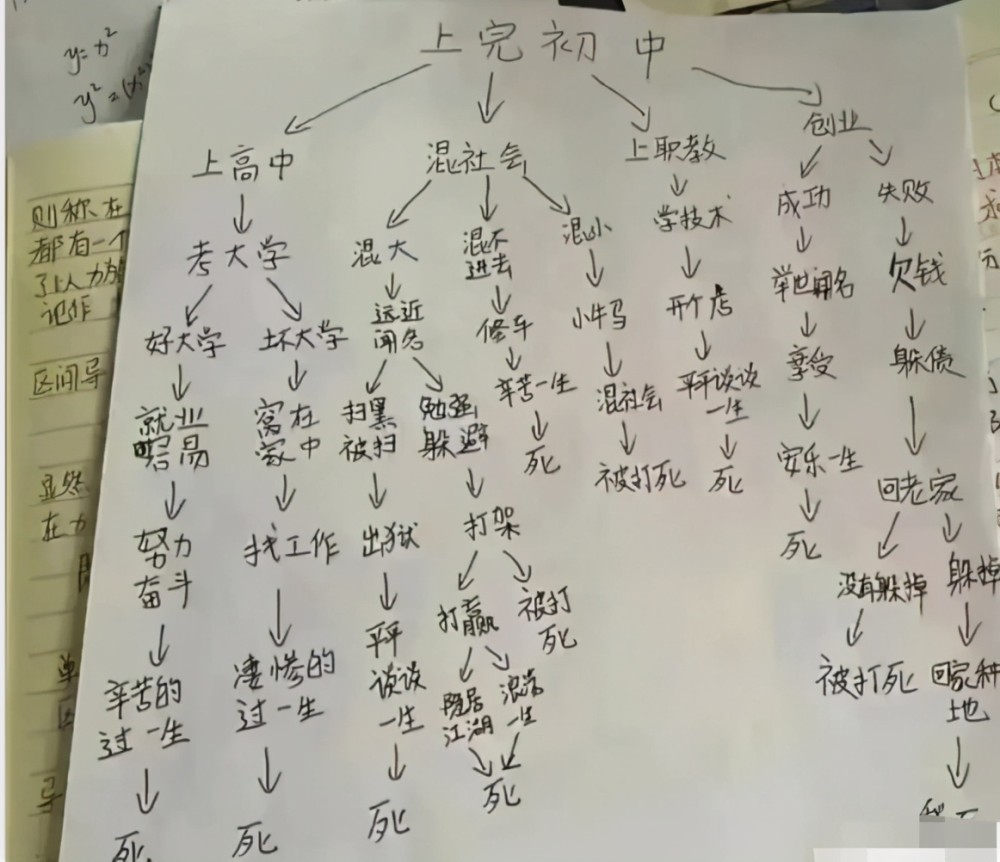 y=x²
上完初中
上高中
混社会
上职教
创业
考大学
混大
混不
进去
混小
学技术
成功
失败
好大学
坏大学
远近
闻名
修车
小牛马
开个店
举世闻名
欠钱
就业
容易
窝在
家中
扫黑
被扫
勉强
躲避
辛苦一生
混社会
平平谈谈
一生
享受
躲债
努力
奋斗
找工作
出狱
打架
死
被打死
死
安乐一生
回老家
辛苦的
过一生
凄惨的
过一生
平平
谈谈
一生
打赢
被打
死
死
没有躲掉
躲掉
隐居
江湖
浪荡
一生
被打死
回家种
地
死
死
死
死
则称在
都有一个
记作
区间导
显然
在力
单
区
导